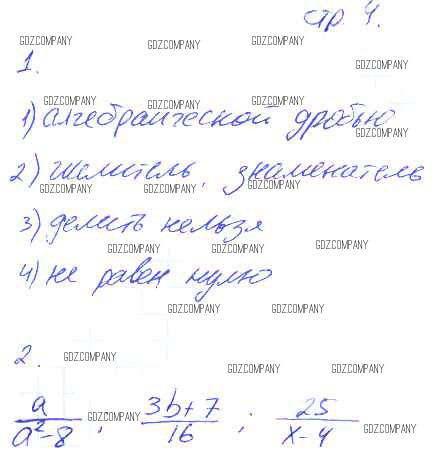 стр. 4.
GDZCOMPANY GDZCOMPANY GDZCOMPANY
1.
GDZCOMPANY
GDZCOMPANY GDZCOMPANY GDZCOMPANY
1) алгебраической дробью
GDZCOMPANY
2) числитель, знаменатель
GDZCOMPANY GDZCOMPANY GDZCOMPANY
3) делить нельзя
GDZCOMPANY GDZCOMPANY GDZCOMPANY
4) не равен нулю
GDZCOMPANY GDZCOMPANY
2.
GDZCOMPANY GDZCOMPANY GDZCOMPANY
a/(a²-8) ; (3b+7)/16 ; 25/(x-4)
GDZCOMPANY GDZCOMPANY